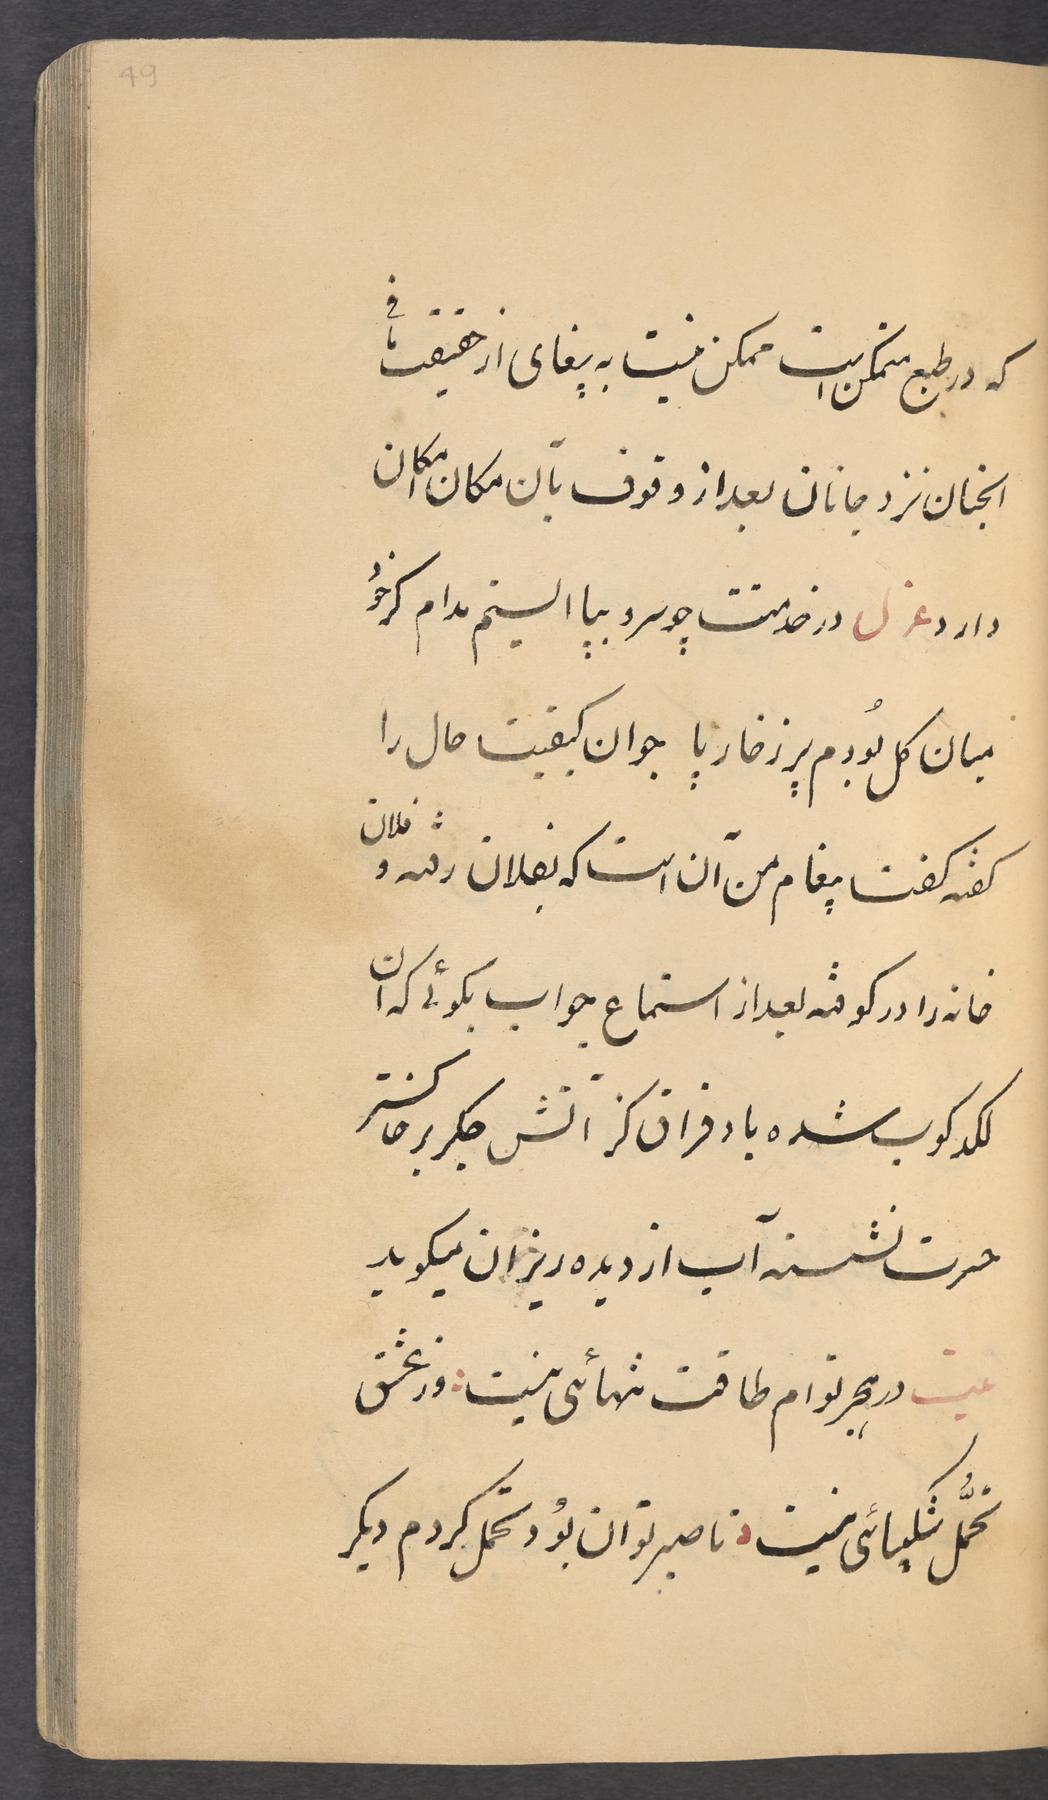 49
که در طبع متمکن است ممکن نیست به پیغامی از حقیقت ما فی
الجنان نزد جانان بعد از وقوف بآن مکان امکان
دارد غزل در خدمتت چو سرو بپا ایستم مدام کر خود
میان کل بُودم پر ز خار پا جوان کیفیت حال را
کفته کفت پیغام من آن است که بفلان رفته و فلان
خانه را در کوفته بعد از استماع جواب بکوئی که ان
لکد کوب شده باد فراق کز آتش جکر بر خاکستر
حسرت نشسته آب از دیده ریزان میکوید
بیت در هجر توام طاقت تنهائی نیست وز عشق
تحمُّل شکیبائی نیست تا صبر توان بُود تحمل کردم دیکر